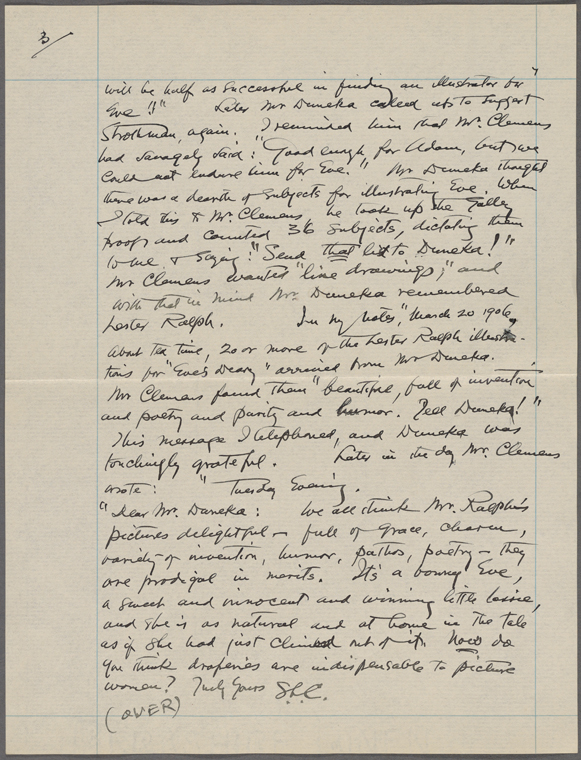 3
will be half as successful in finding an illustrator for
Eve"!" Later Mr Duneka called up to suggest
Strothman, again. I reminded him that Mr. Clemens
had savagely said: "Good enough for Adam, but we
could not endure him for Eve." Mr Duneka thought
there was a dearth of subjects for illustrating Eve. When
I told this to Mr. Clemens he took up the Galley
proofs and counted 36 subjects, dictating them
to me & saying: "Send that list to Duneka!"
Mr Clemens wanted "line drawings;" and
with that in mind Mr. Duneka remembered
Lester Ralph. In my notes, "March 20 1906,
about tea time, 20 or more of the Lester Ralph illustra-
tions for "Eve's Diary" arrived from Mr Duneka.
Mr Clemens found them "beautiful, full of invention
and poetry and purity and humor. Tell Duneka!"
This message I telephoned, and Duneka was
touchingly grateful. Later in the day, Mr. Clemens
wrote: "Tuesday Evening.
"Dear Mr. Duneka: We all think Mr. Ralph's
pictures delightful — full of grace, charm,
variety of invention, humor, pathos, poetry — they
are prodigal in merits. It's a bonny Eve,
a sweet and innocent and winning little lassie,
and she is as natural and at home in the tale
as if she had just climbed out of it. Now do
you think draperies are indispensable to picture
women? Truly Yours S.L.C.
(OVER)